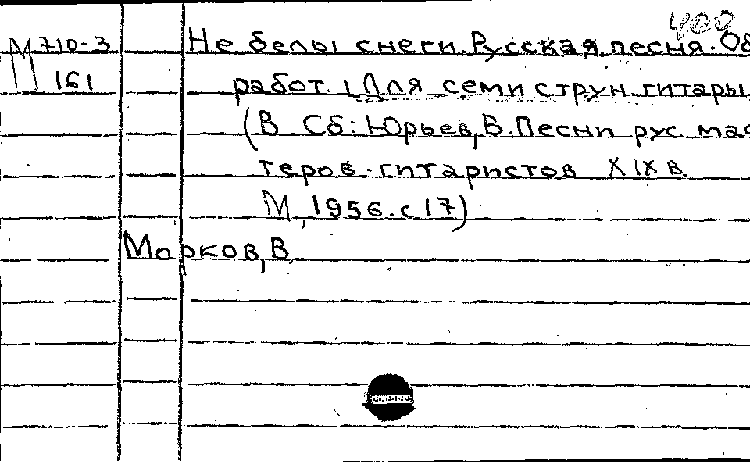 400
М 710-3
161
Не белы снеги. Русская песня. Об
работ. Для семиструн. гитары
(В сб: Юрьев, В. Песни рус. мас
теров-гитаристов XIX в
М, 1956. с 17)
Морков, В